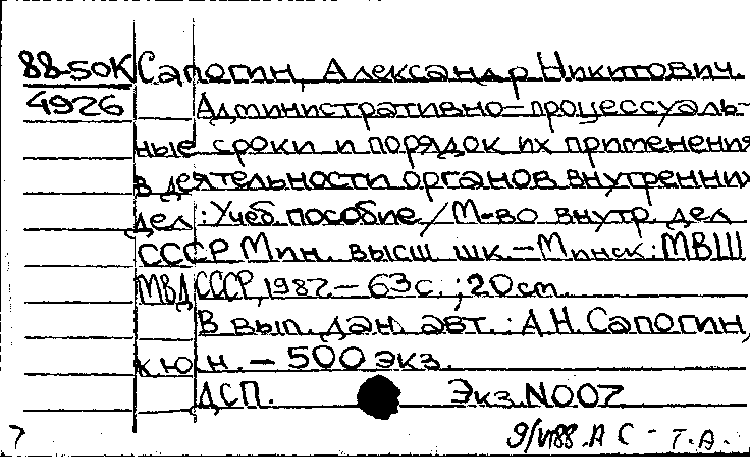 88-50К Сапогин, Александр Никитович.
4926 Административно-процессуаль-
ные сроки и порядок их применения
в деятельности органов внутренних
дел : Учеб. пособие / М-во внутр. дел
СССР. Мин. высш. шк. — Минск : МВШ
МВД СССР, 1987. — 63 с. ; 20 см.
В вып. дан. авт. : А.Н. Сапогин,
к.ю.н. — 500 экз.
ДСП. Экз. N007
7 9/VI88. А С - Т.А.